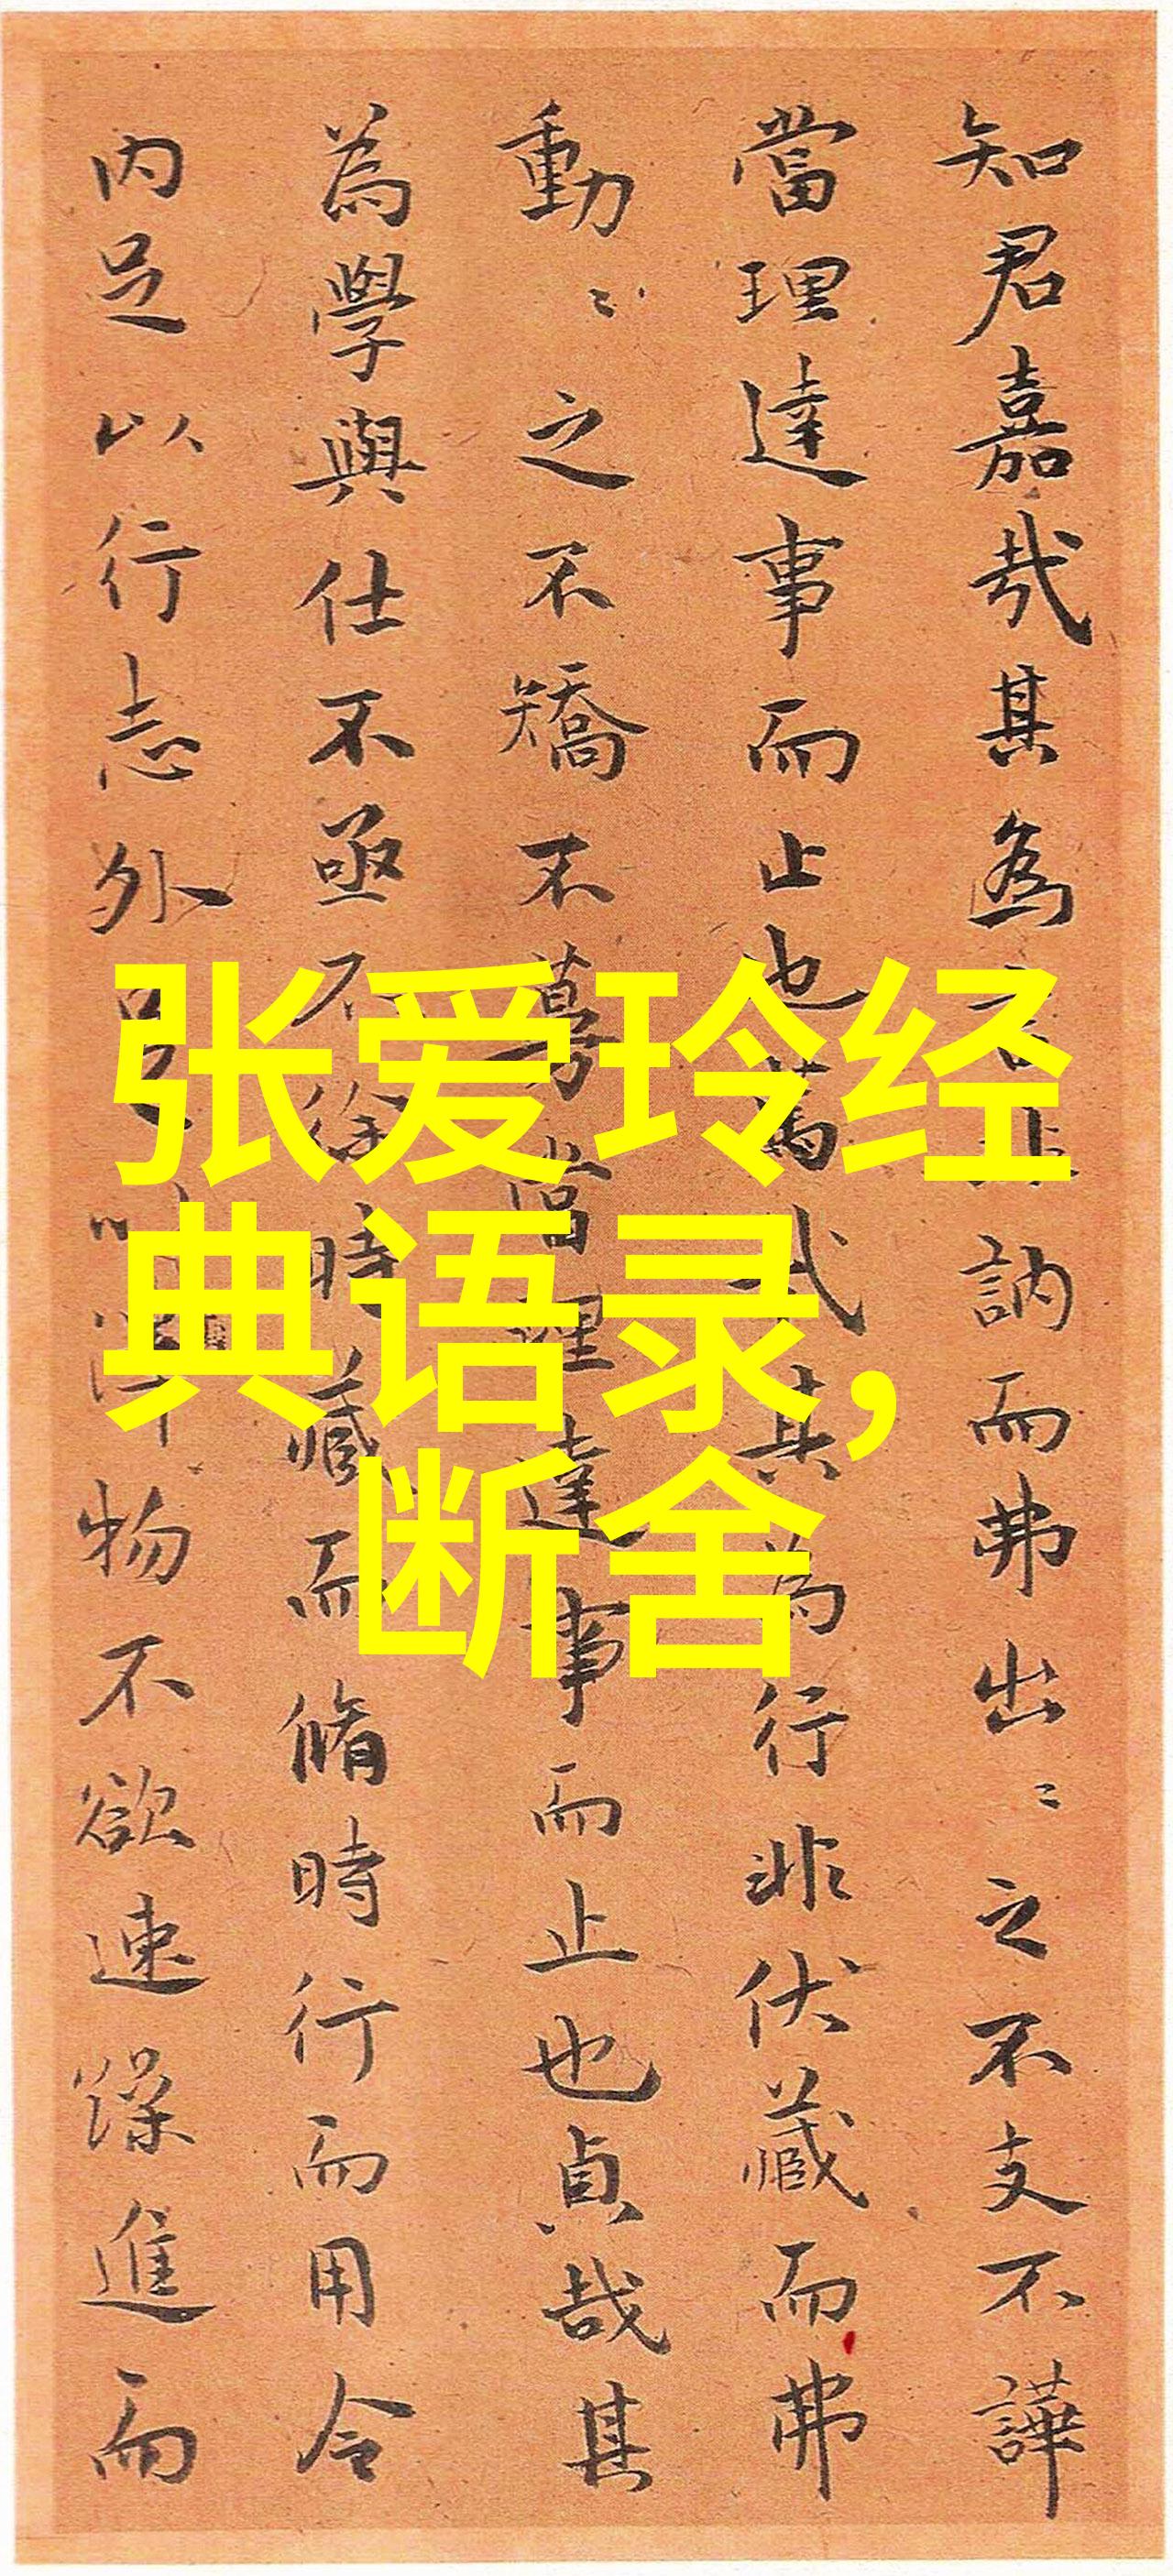 张爱玲经
典语录，
断舍
知君嘉哉其為訥而弗出〻之不支不譁
當理達事而止也其為行非伏藏而弗
動〻之不矯不當理達事而止也貞哉其
為學與仕不亟不徐時藏而脩時行而用令
內足以行志外物不欲速躁進而